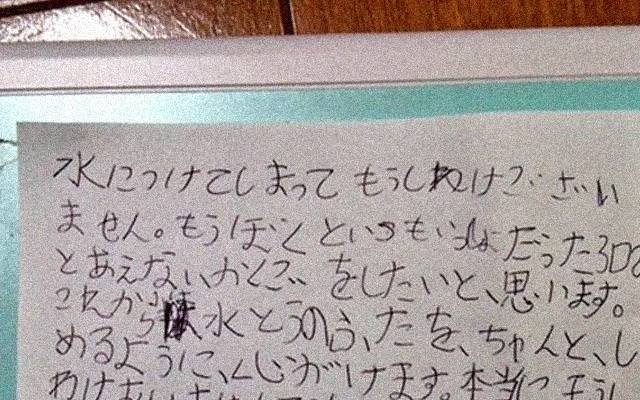 水につけてしまって もうしわけござい
ません。もうぼくといつもいっしょだった3DS
とあえないかくごをしたいと、思います。
これから水とうのふたを、ちゃんと、し
めるように、くじがけます。本当にもうし
わけ